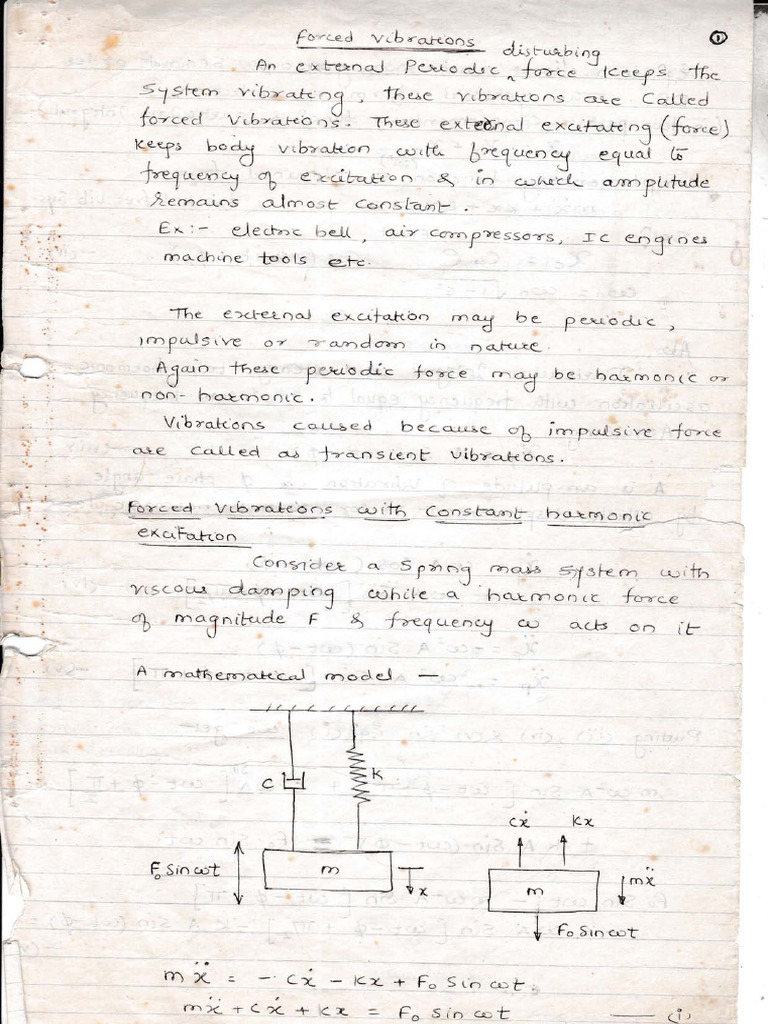 Forced Vibrations
①
disturbing
An external Periodic ^ force keeps the
System vibrating, these vibrations are called
forced vibrations. These external excitating (force)
keeps body vibration with frequency equal to
frequency of excitation & in which amplitude
remains almost constant.
Ex:- electric bell, air compressors, IC engines
machine tools etc.
The external excitation may be periodic,
impulsive or random in nature.
Again these periodic force may be harmonic or
non-harmonic.
Vibrations caused because of impulsive force
are called as transient vibrations.
Forced Vibrations with Constant harmonic
excitation
Consider a Spring mass system with
viscous damping while a harmonic force
of magnitude F & frequency ω acts on it
A mathematical model —
C
K
F₀ Sin ωt
m
x
cẋ
kx
m
mẍ
F₀ Sin ωt
mẍ = - cẋ - kx + F₀ Sin ωt.
mẍ + cẋ + kx = F₀ sin ωt —— (i)